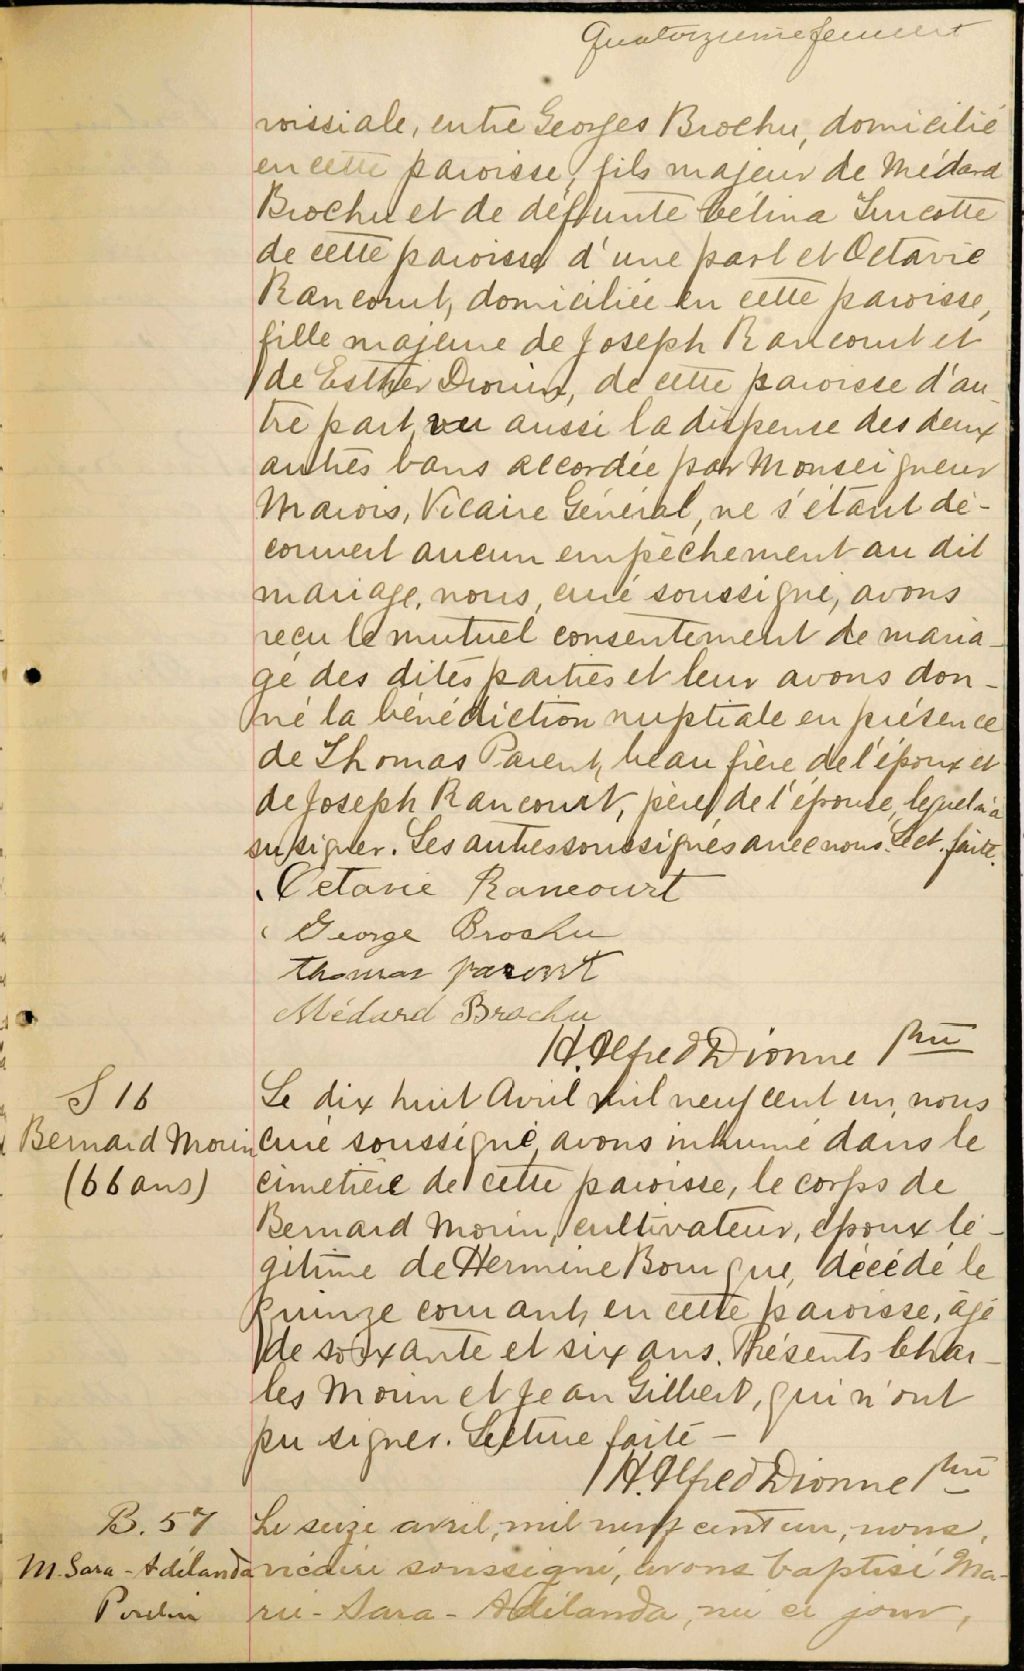 Quatorzième feuillet
roissiale, entre Georges Brochu, domicilié
en cette paroisse, fils majeur de Médard
Brochu et de défunte Célina Turcotte
de cette paroisse d'une part et Octavie
Rancourt, domiciliée en cette paroisse,
fille majeure de Joseph Rancourt et
de Esther Drouin, de cette paroisse d'au-
tre part, vu aussi la dispense des deux
autres bans accordée par Monseigneur
Marois, Vicaire Général, ne s'étant dé-
couvert aucun empêchement au dit
mariage, nous, curé soussigné, avons
reçu le mutuel consentement de maria-
ge des dites parties et leur avons don-
né la bénédiction nuptiale en présence
de Thomas Parent, beau frère de l'époux et
de Joseph Rancourt, père de l'épouse, lequel n'a
su signer. Les autres soussignés avec nous. Lect. faite.
Octavie Rancourt
George Brochu
thomas parent
Médard Brochu
H. Alfred Dionne Ptre
S 16
Bernard Morin
(66 ans)
Le dix huit Avril mil neuf cent un, nous
curé soussigné, avons inhumé dans le
cimetière de cette paroisse, le corps de
Bernard Morin, cultivateur, époux lé-
gitime de Hermine Bourque, décédé le
quinze courant, en cette paroisse, âgé
de soixante et six ans. Présents Char-
les Morin et Jean Gilbert, qui n'ont
pu signer. Lecture faite —
H. Alfred Dionne Ptre
B. 57
M. Sara - Adélanda
Poulin
Le seize avril, mil neuf cent un, nous,
vicaire soussigné, avons baptisé Ma-
rie - Sara - Adélanda, née ce jour,